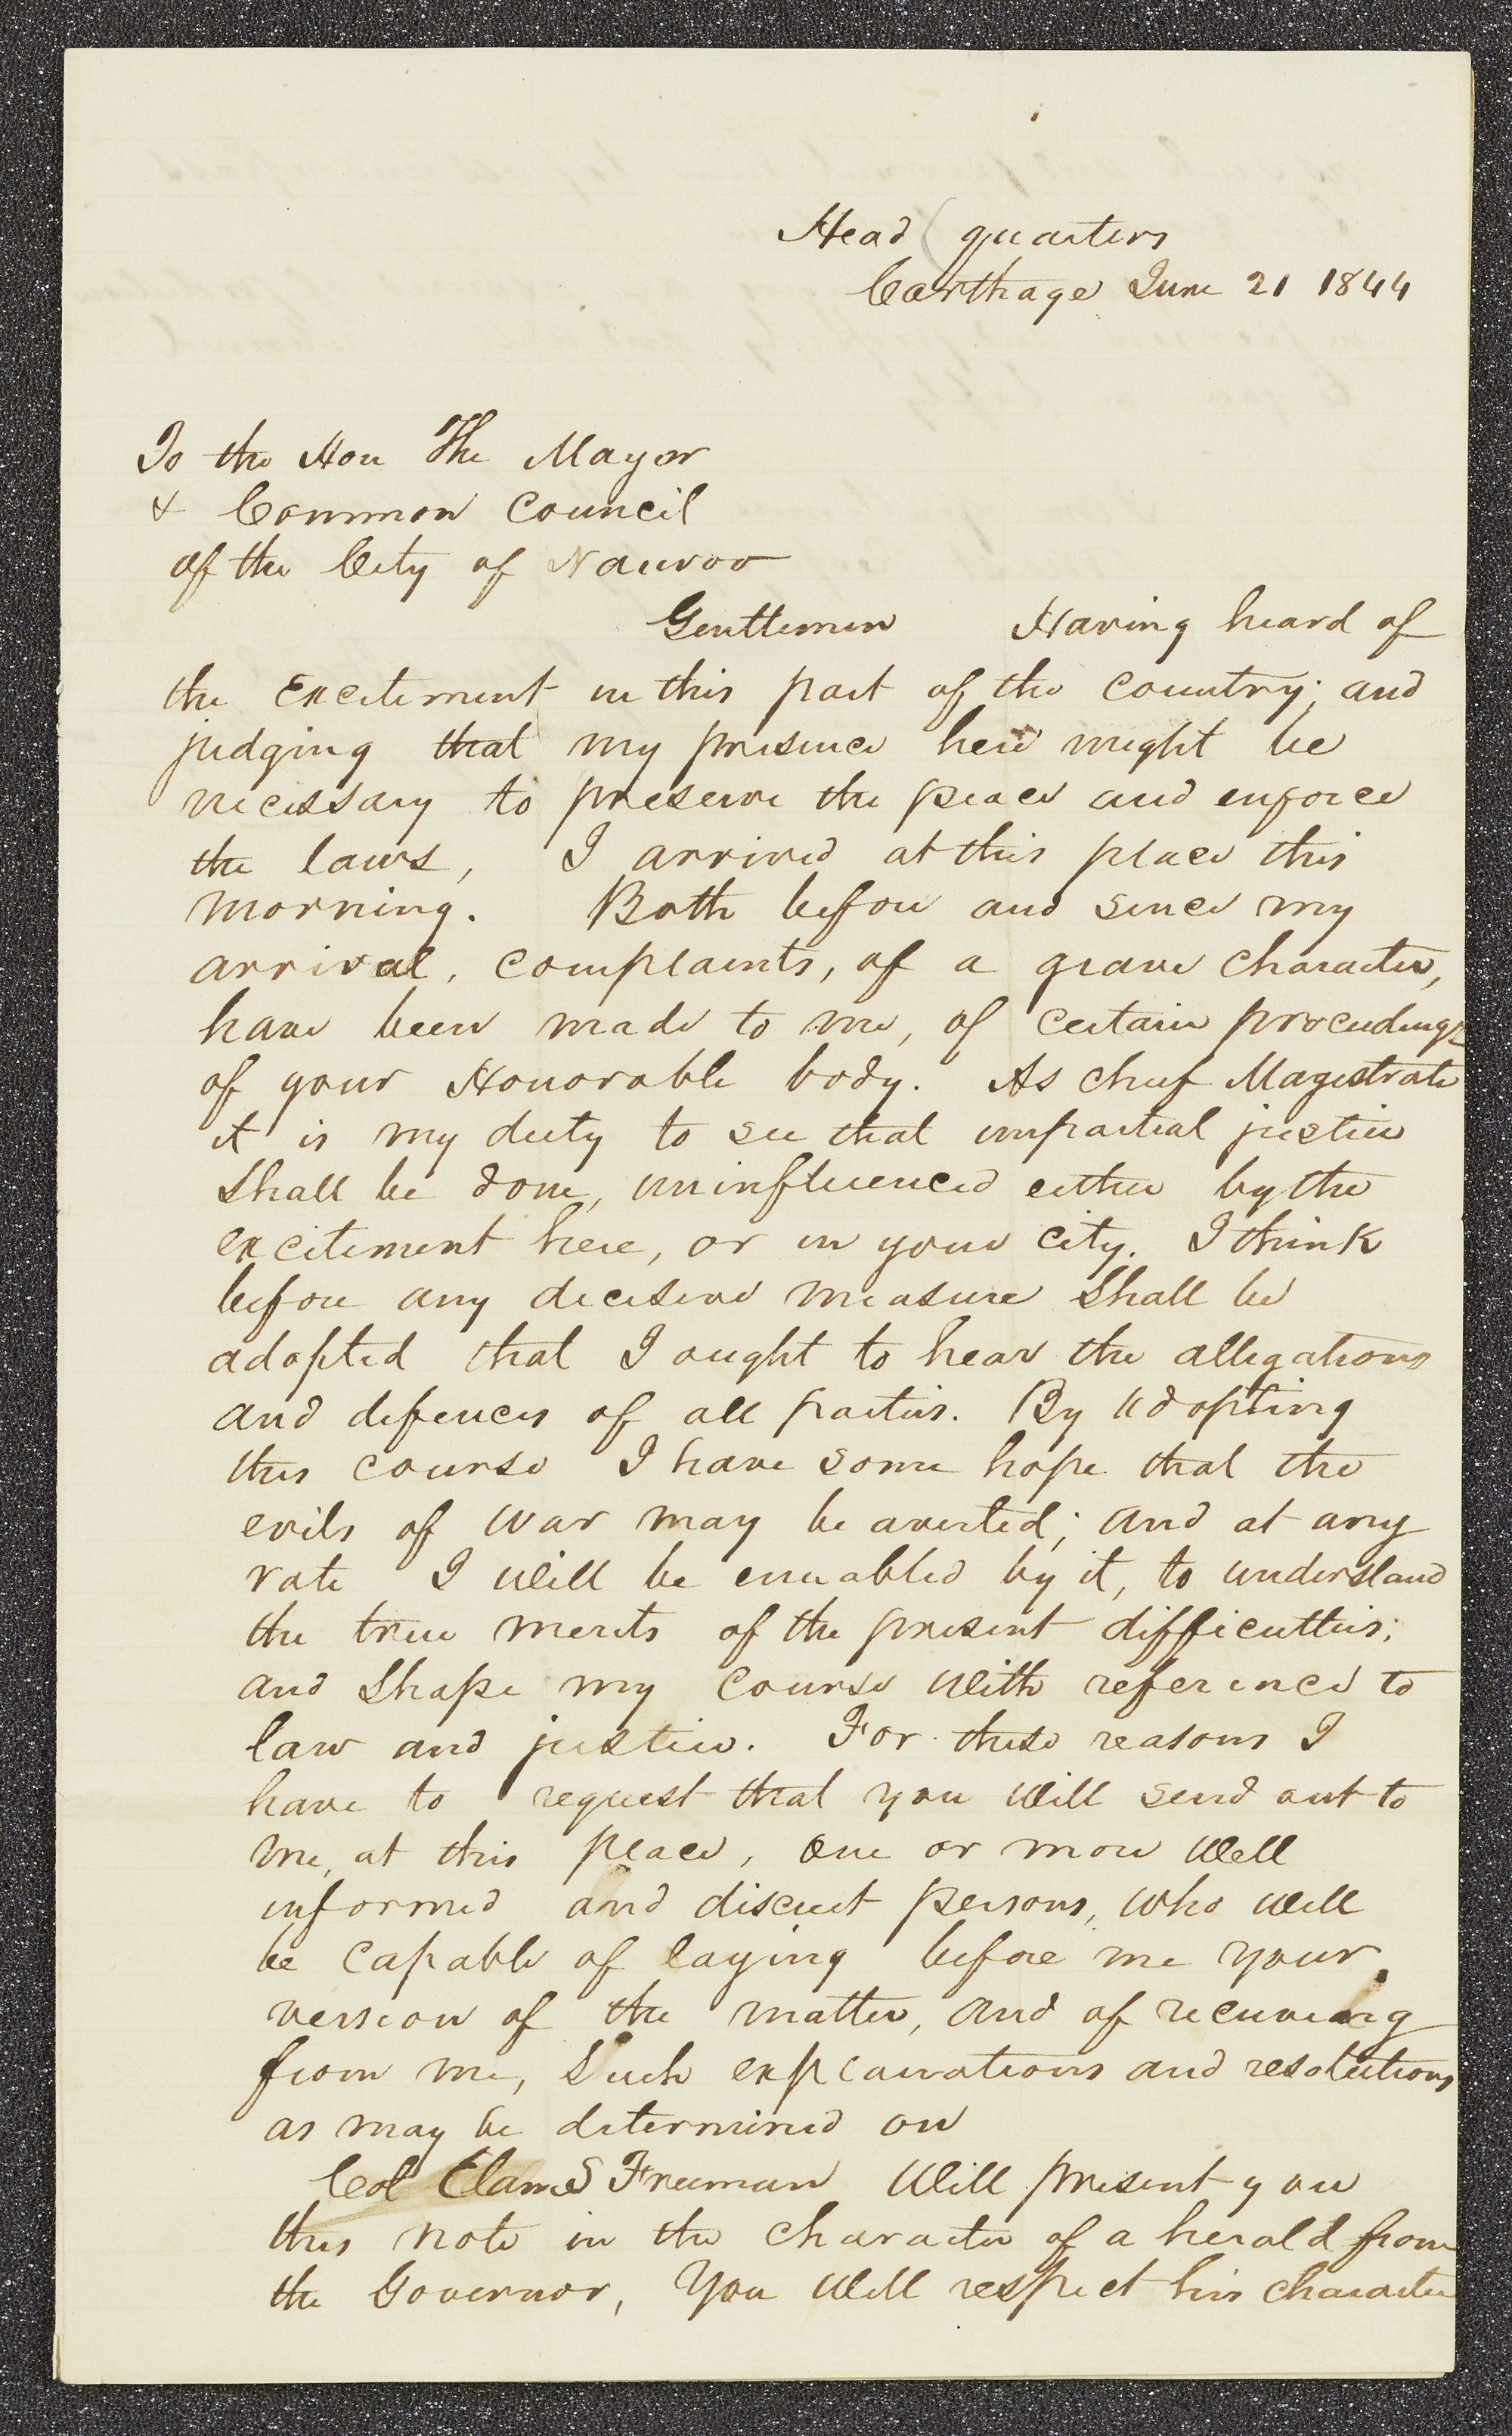 Head quarters
Carthage June 21 1844
To the Hon The Mayor
& Common Council
of the City of Nauvoo
Gentlemen Having heard of
the Excitement in this part of the country; and
judging that my presence here might be
necessary to preserve the peace and enforce
the laws, I arrived at this place this
morning. Both before and since my
arrival, complaints, of a grave character,
have been made to me, of certain proceedings
of your Honorable body. As chief Magistrate
it is my duty to see that impartial justice
shall be done, uninfluenced either by the
excitement here, or in your city. I think
before any decisive measure shall be
adopted that I ought to hear the allegations
and defences of all parties. By adopting
this course I have some hope that the
evils of war may be averted; and at any
rate I will be enabled by it, to understand
the true merits of the present difficulties;
and shape my course with reference to
law and justice. For these reasons I
have to request that you will send out to
me, at this place, one or more well
informed and discreet persons, who will
be capable of laying before me your
version of the matter, and of receiving
from me, such explanations and resolutions
as may be determined on
Col Elam S Freeman will present you
this note in the character of a herald from
the Governor, You will respect his character